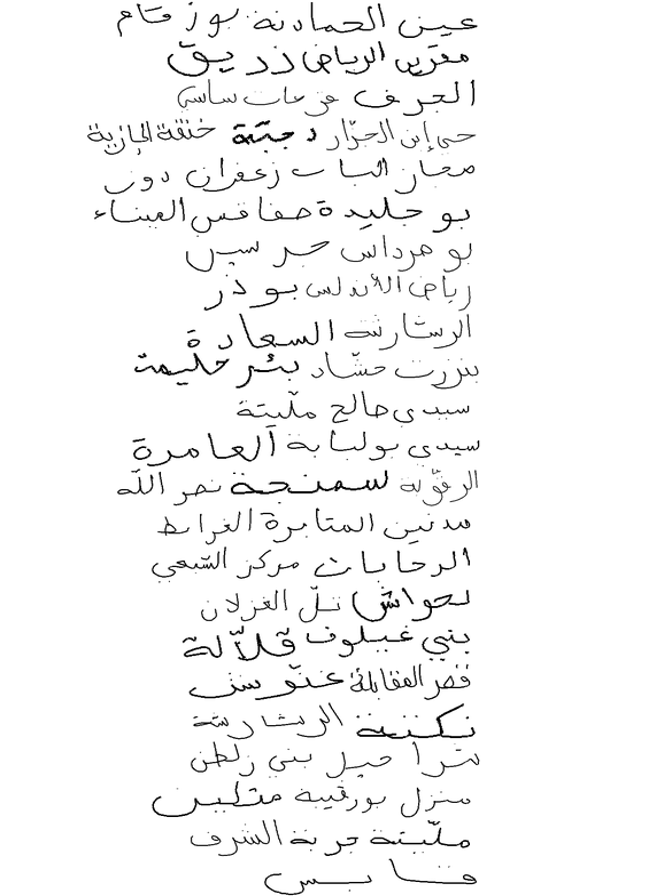 عين الحمادنة بوزقام
مقرين الرياض زريق
الجرف فرعات ساسي
حي إبن الجزار دجبّة خنقة الجازية
مجاز الباب زعفران دوز
بو جليدة صفاقس الميناء
بو مرداس جرسين
رياض الأندلس بوذر
الرشارشة السعادة
بنزرت حشّاد بئر حليمة
سيدي صالح ملّيتة
سيدي بولبابة العامرة
الرقّوبة سمنجة نصر الله
مدنين المثابرة الغرابط
الرحابات مركز الشيحي
لحواش تلّ الغزلان
بني غيلوف قلاّلة
قصر المقابلة عنّوش
نكتة الرشارشة
شراحيل بني زلطن
منزل بورقيبة متلين
ملّيتة جربة الشرف
قابس